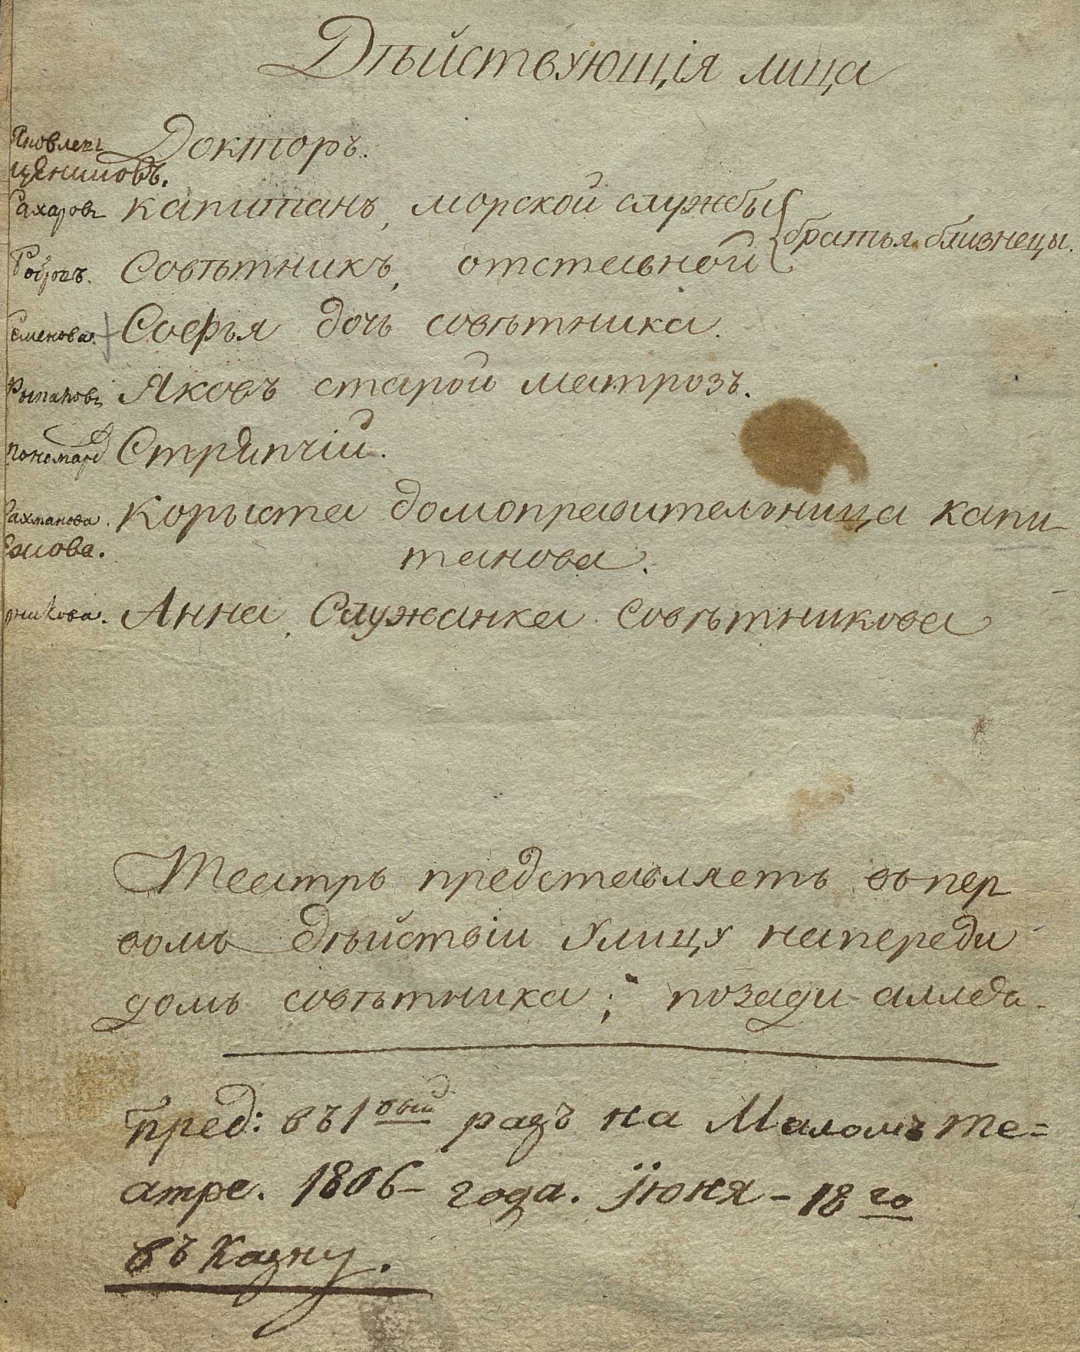 Дѣйствующія лица
Яковлевъ Докторъ.
Щениковъ.
Сахаровъ капитанъ, морской службы
братья близнецы.
Бобровъ. Совѣтникъ, отставной
Семенова. Софья дочь совѣтника.
Рыкаловъ Яковъ старой матрозъ.
Пономарев Стряпчій.
Рахманова. Корыста домоправительница капи-
Ежова. танова.
Анна, Служанка совѣтникова
Театръ представляетъ въ пер
вомъ дѣйствіи улицу напереди
домъ совѣтника; позади аллеа.
Пред: въ 1вый разъ на Маломъ те=
атре. 1806 - года. Іюня - 18го
въ Казну.